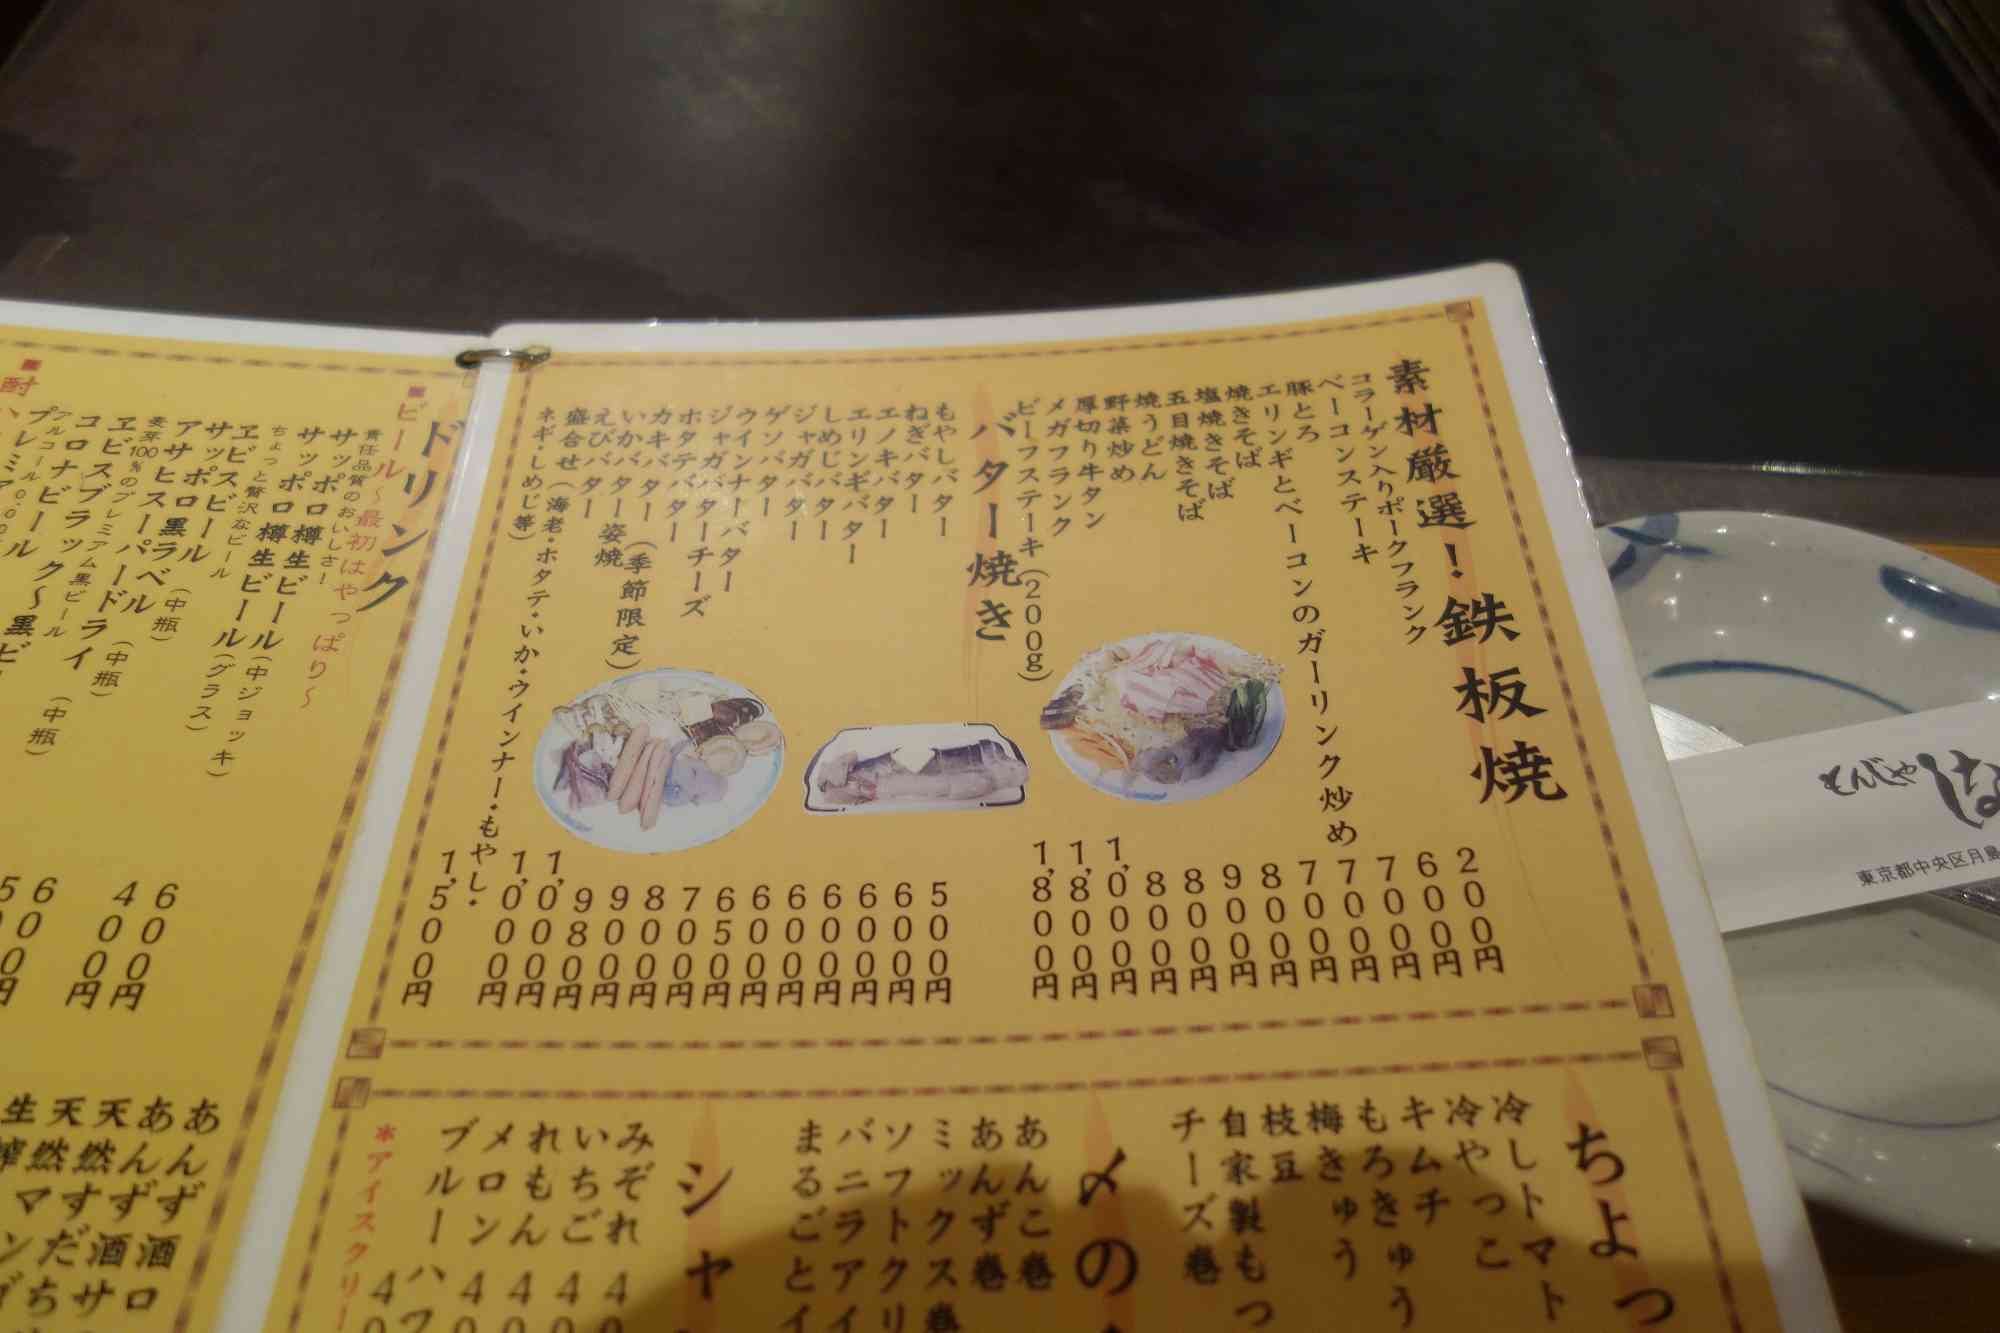 素材厳選!鉄板焼
コラーゲン入りポークフランク 200円
ベーコンステーキ 600円
豚とろ 700円
エリンギとベーコンのガーリンク炒め 700円
焼きそば 700円
塩焼きそば 800円
五目焼きそば 900円
焼うどん 800円
野菜炒め 800円
厚切り牛タン 1,000円
メガフランク 1,800円
ビーフステーキ(200g) 1,800円
バター焼き
もやしバター 500円
ねぎバター 600円
エノキバター 600円
エリンギバター 600円
しめじバター 600円
ジャガバター 600円
ゲソバター 650円
ウインナーバター 700円
ジャガバターチーズ 800円
ホタテバター 900円
カキバター(季節限定) 980円
いかバター姿焼 1,000円
えびバター 1,000円
盛合せ(海老・ホタテ・いか・ウインナー・もやし・
ネギ・しめじ等) 1,500円
ドリンク
■ビール~最初はやっぱり~
責任品質のおいしさ!
サッポロ樽生ビール(中ジョッキ)
サッポロ樽生ビール(グラス)
ちょっと贅沢なビール
ヱビスビール
サッポロ黒ラベル(中瓶)
アサヒスーパードライ(中瓶)
麦芽100%のプレミアム黒ビール
ヱビスブラック~黒ビ
コロナビール(中瓶)
600円
400円
ちょっ
冷しトマト
冷やっこ
キムチ
もろきゅう
梅きゅう
枝豆
自家製もつ
チーズ巻
〆の
あんこ巻
あんず巻
ミックス巻
ソフトクリ
バニラアイ
まるごとイ
シャ
みぞれ
いちご
れもん
メロン
ブルーハワ
*アイスクリー
あんず酒
天然
もんじゃ
東京都中央区月島